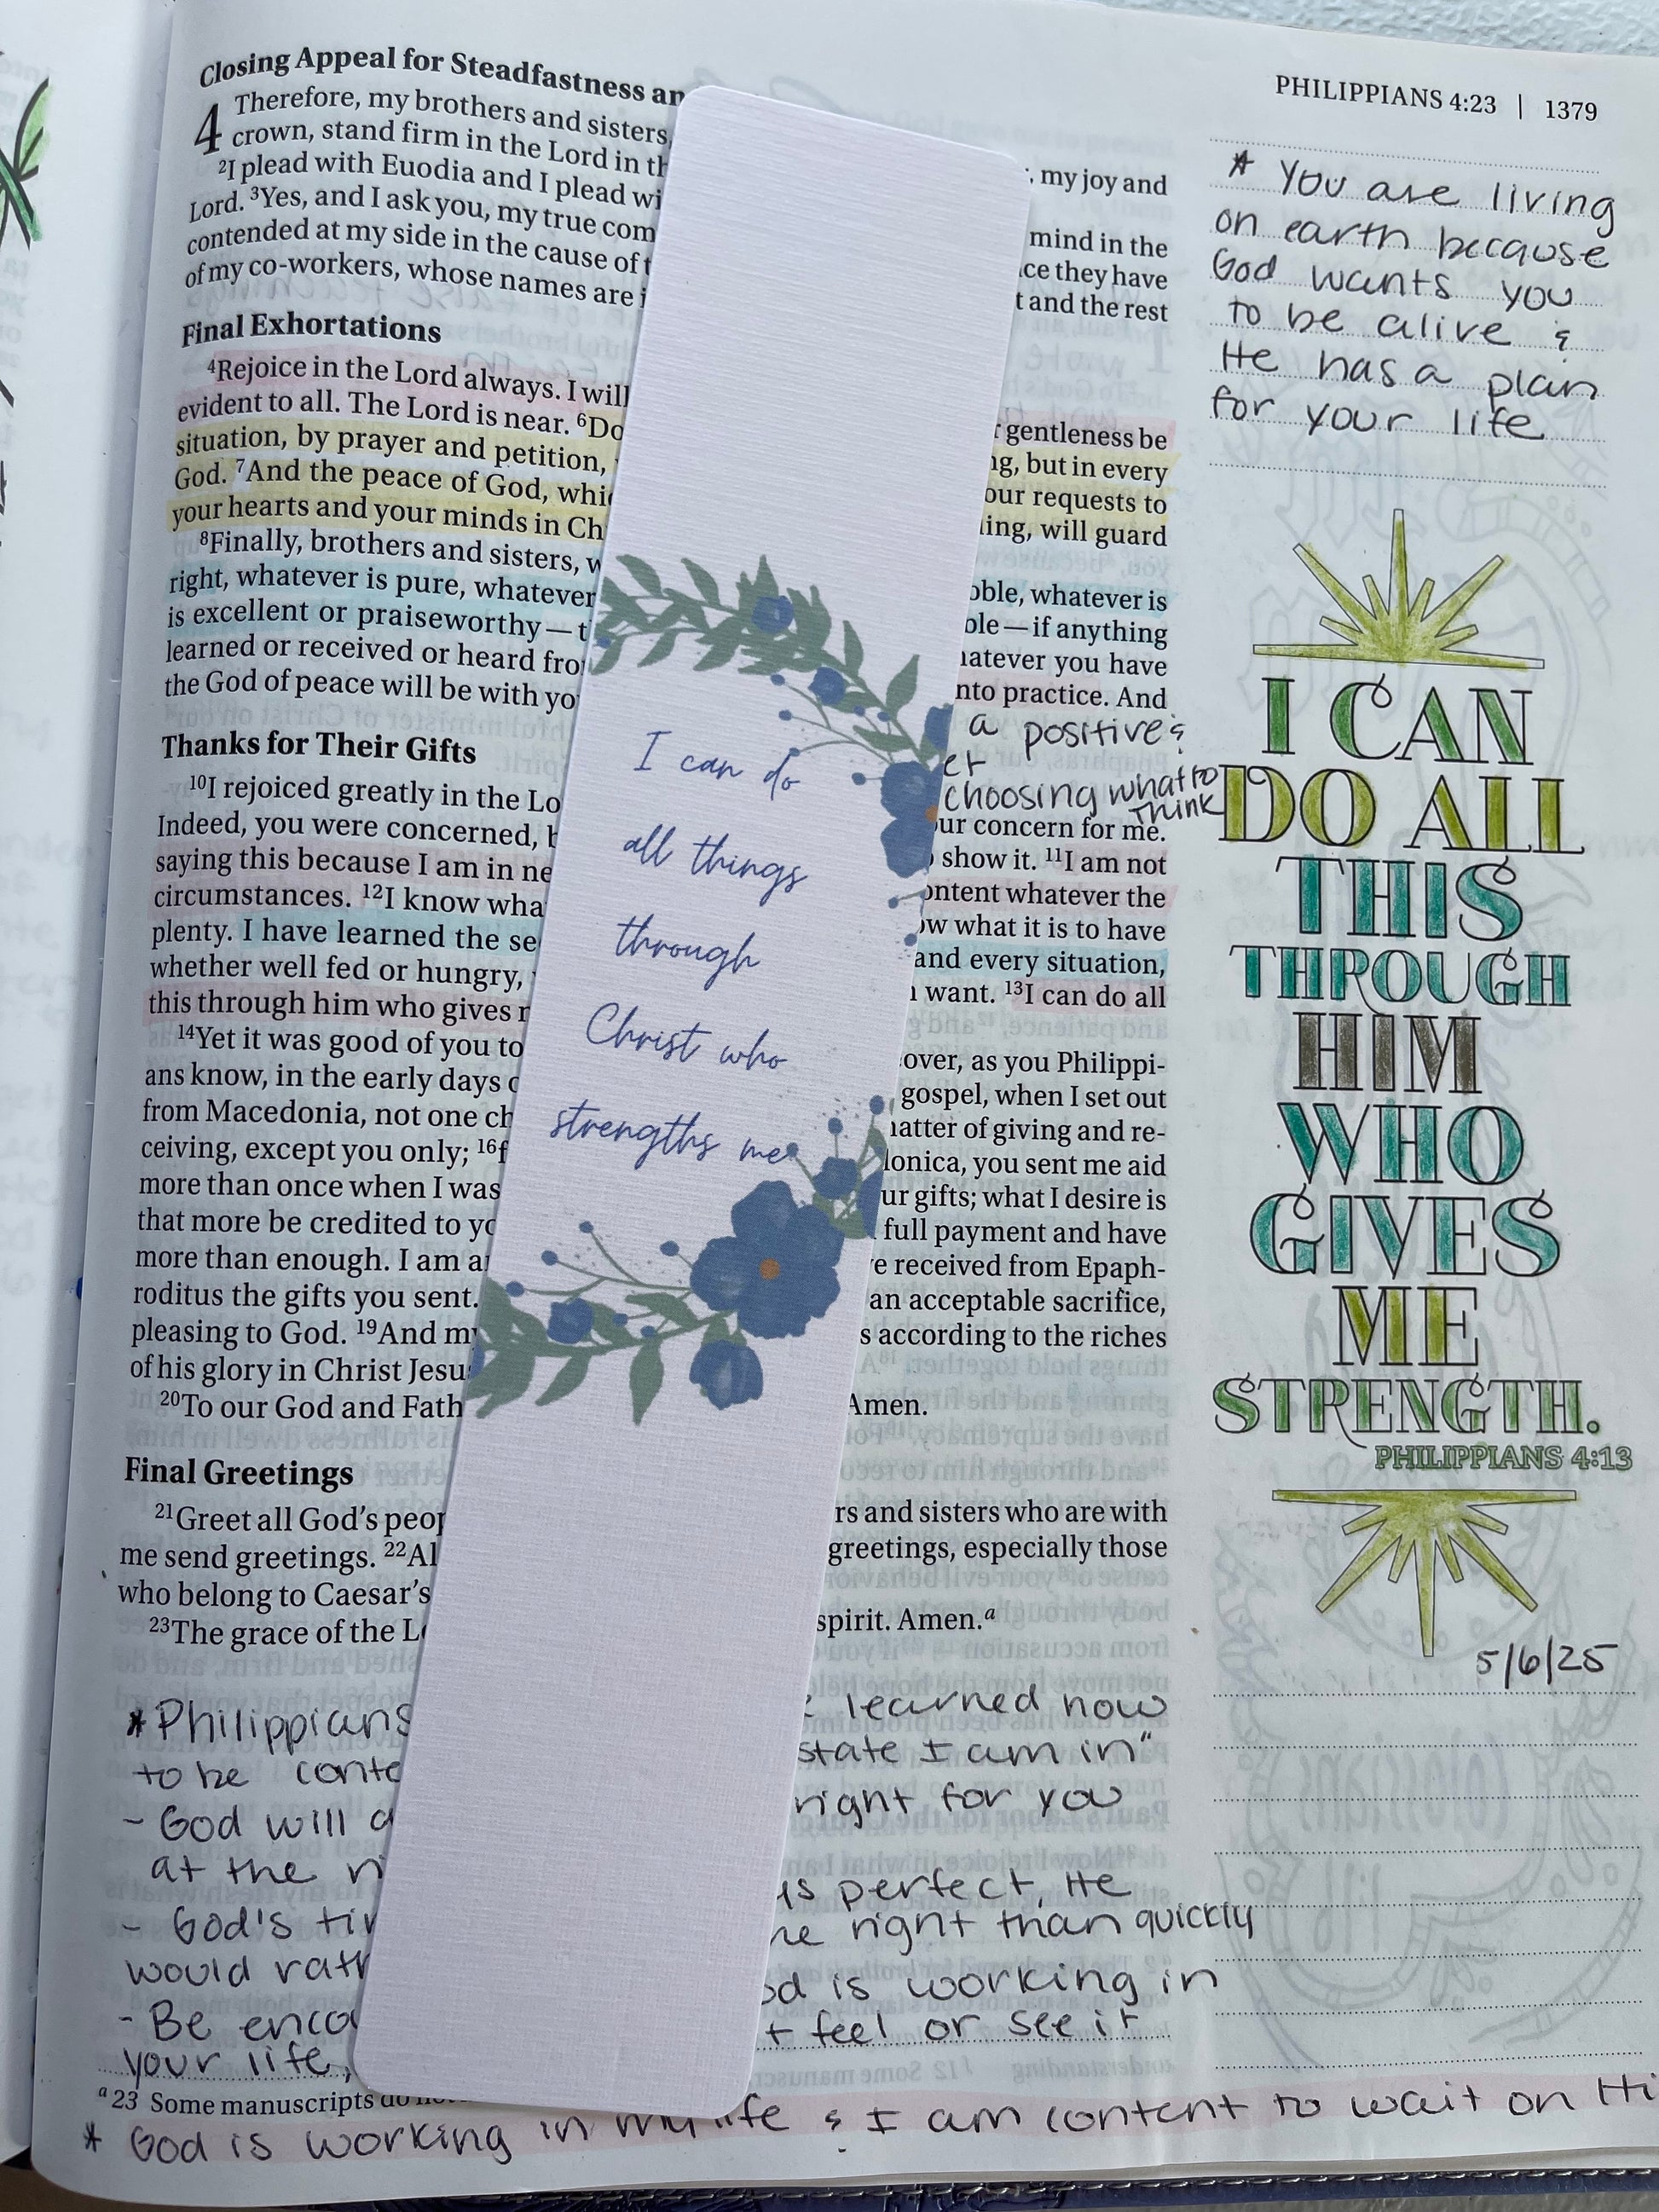 PHILIPPIANS 4:23 | 1379
Closing Appeal for Steadfastness an
4 Therefore, my brothers and sisters, my joy and
crown, stand firm in the Lord in th
2I plead with Euodia and I plead wi mind in the
Lord. 3Yes, and I ask you, my true com ce they have
contended at my side in the cause of t and the rest
of my co-workers, whose names are i
Final Exhortations
4Rejoice in the Lord always. I will gentleness be
evident to all. The Lord is near. 6Do ng, but in every
situation, by prayer and petition, our requests to
God. 7And the peace of God, whic ding, will guard
your hearts and your minds in Ch
8Finally, brothers and sisters, w oble, whatever is
right, whatever is pure, whatever ble—if anything
is excellent or praiseworthy—t hatever you have
learned or received or heard fro nto practice. And
the God of peace will be with yo
a positive &
et
choosing what to
think
Thanks for Their Gifts
10I rejoiced greatly in the Lo ur concern for me.
Indeed, you were concerned, b show it. 11I am not
saying this because I am in ne ontent whatever the
circumstances. 12I know wha ow what it is to have
plenty. I have learned the se and every situation,
whether well fed or hungry, want. 13I can do all
this through him who gives
14Yet it was good of you to over, as you Philippi-
ans know, in the early days gospel, when I set out
from Macedonia, not one ch matter of giving and re-
ceiving, except you only; 16f lonica, you sent me aid
more than once when I was ur gifts; what I desire is
that more be credited to yo full payment and have
more than enough. I am a e received from Epaph-
roditus the gifts you sent. an acceptable sacrifice,
pleasing to God. 19And my s according to the riches
of his glory in Christ Jesu
20To our God and Fath Amen.
Final Greetings
21Greet all God's peop rs and sisters who are with
me send greetings. 22Al greetings, especially those
who belong to Caesar's
23The grace of the L spirit. Amen.a
*Philippians learned how
to be conte state I am in"
- God will right for you
at the ri
- God's tim is perfect. He
would rath right than quickly
- Be enco od is working in
your life, t feel or see it
a 23 Some manuscripts do
* God is working in my life & I am content to wait on Hi
I can do
all things
through
Christ who
strengths me
* You are living
on earth because
God wants you
to be alive &
He has a plan
for your life
I CAN
DO ALL
THIS
THROUGH
HIM
WHO
GIVES
ME
STRENGTH.
PHILIPPIANS 4:13
5/6/25